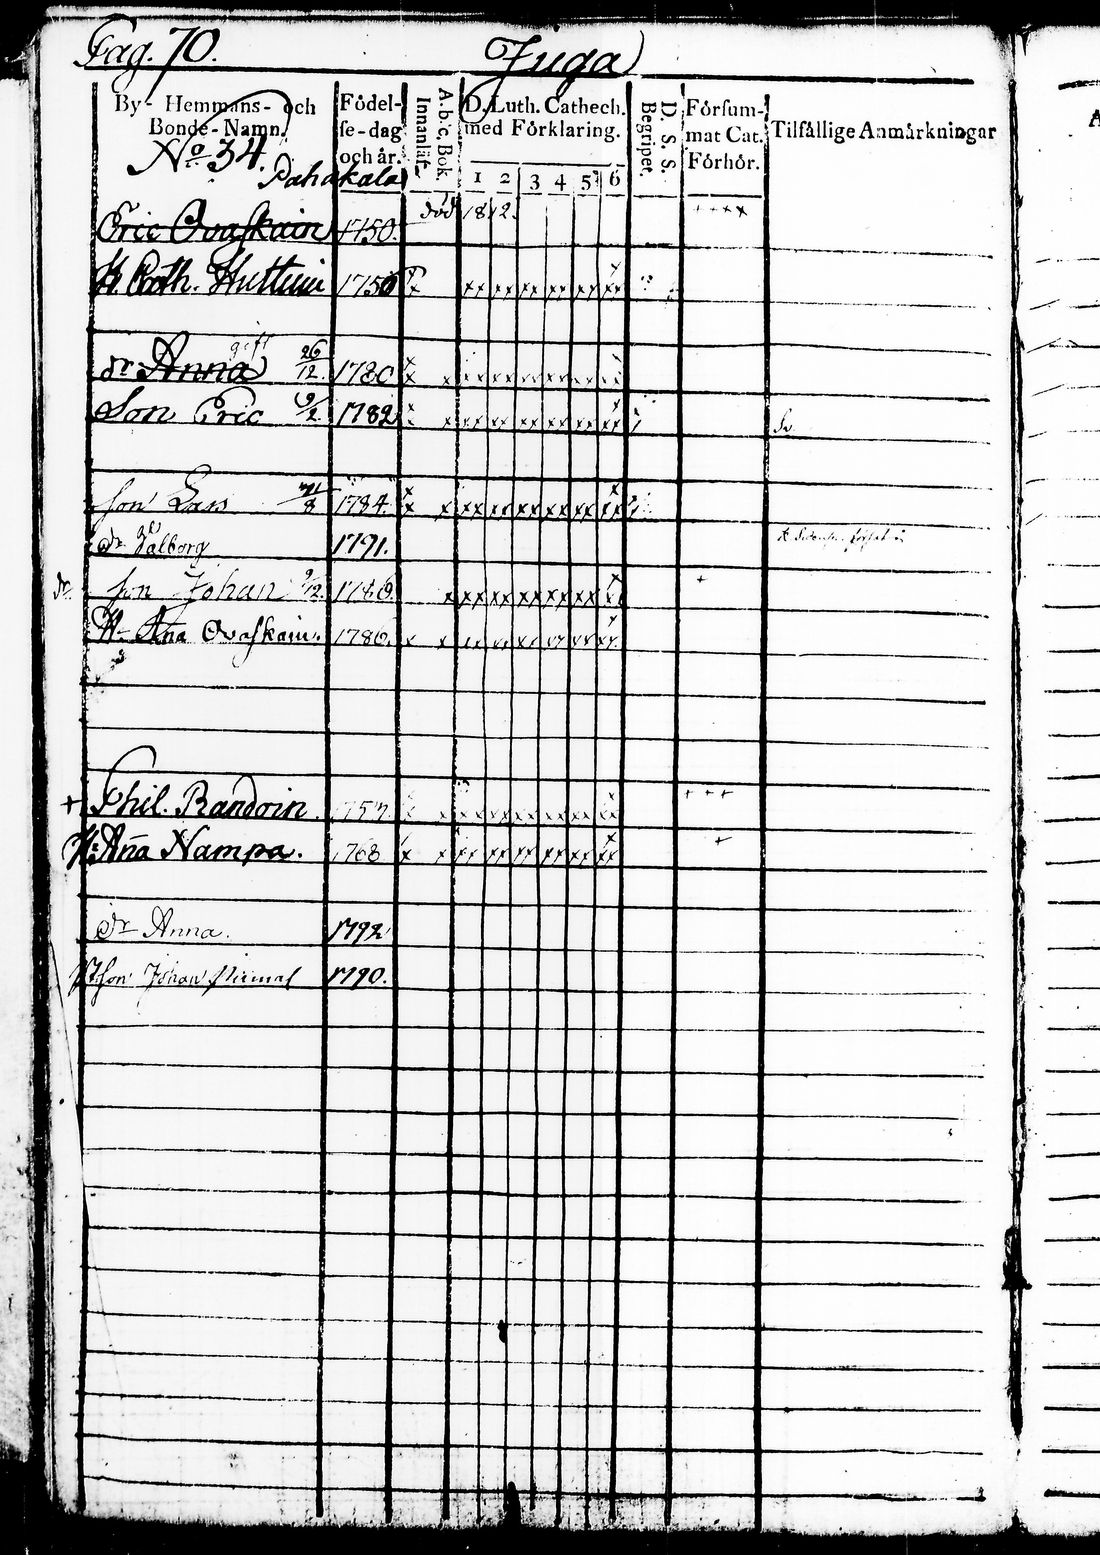 Pag. 70. Juga
By- Hemmans- och Bonde-Namn.
Födel-se-dag och år.
Innanläst.
A. b. c. Bok.
D. Luth. Cathech. med Förklaring.
1 2 3 4 5 6
Begripet.
D. S. S.
Försum-mat Cat. Förhör.
Tilfällige Anmärkningar
No 34.
Pahakala
Eric Ovaskain 1750. död 1812. ++++
H. Cath. Huttuin 1750
gift
dr Anna 26/12 1780
Son Eric 9/2 1782
son Lars 1784
dr Valborg 1791.
son Johan 9/12 1786
H. Ana Ovaskain. 1786.
+ Phil. Randoin 1757. +++
H: Aña Nampa. 1768 +
dr Anna. 1792
son Johan 1790.